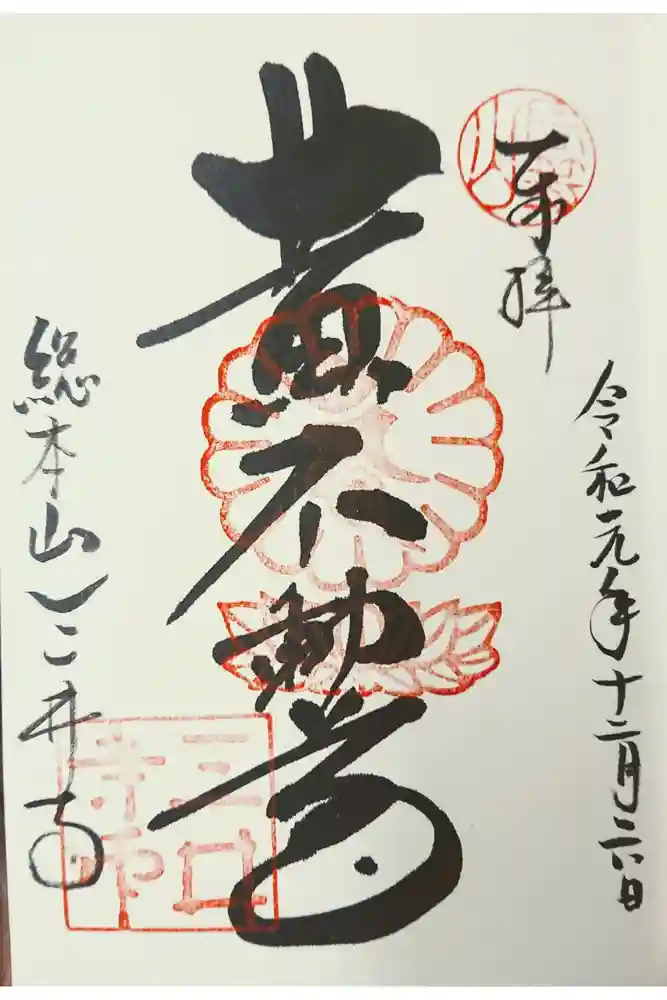 奉拝
令和元年十二月二六日
黄不動尊
総本山三井寺
三井
寺印